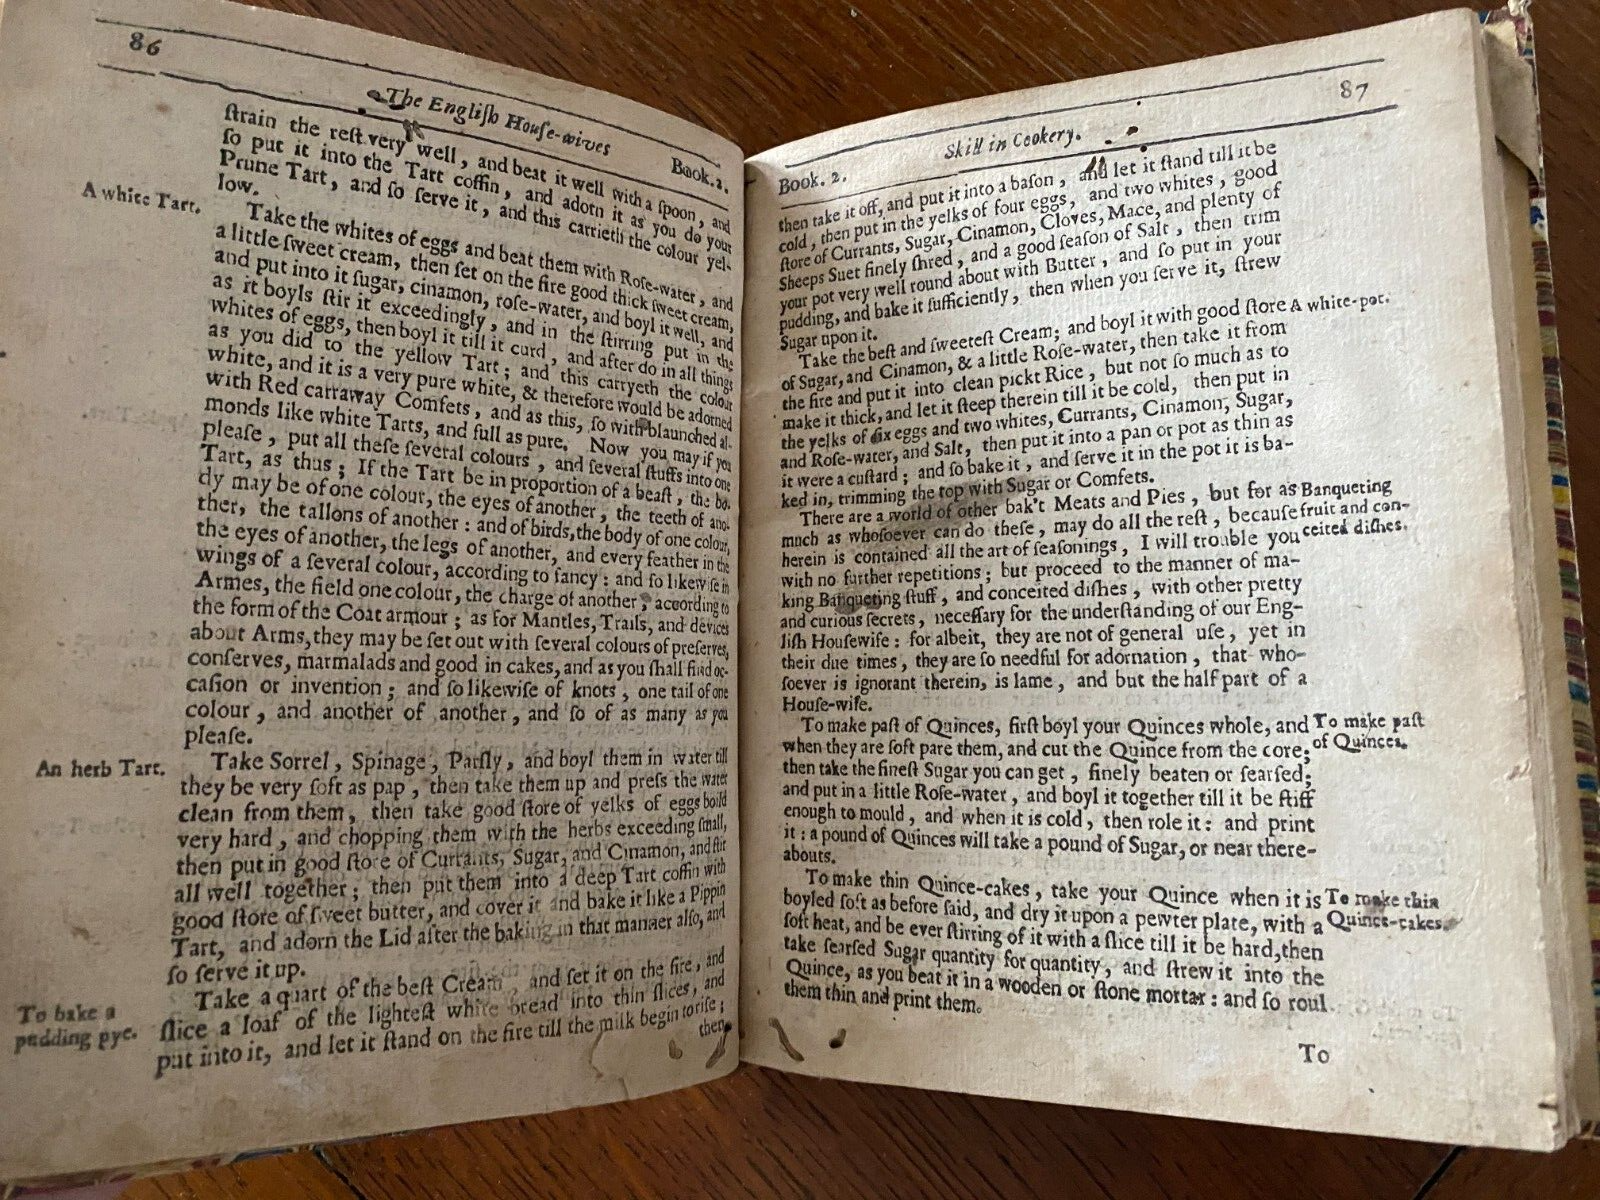 86
The Engliſh Houſe-wives
Book. 2.
ſtrain the reſt very well, and beat it well with a ſpoon, and
ſo put it into the Tart coffin, and adorn it as you do your
Prune Tart, and ſo ſerve it, and this carrieth the colour yel-
low.
A white Tart.
Take the whites of eggs and beat them with Roſe-water, and
a little ſweet cream, then ſet on the fire good thick ſweet cream,
and put into it ſugar, cinamon, roſe-water, and boyl it well, and
as it boyls ſtir it exceedingly, and in the ſtirring put in the
whites of eggs, then boyl it till it curd, and after do in all things
as you did to the yellow Tart; and this carryeth the colour
white, and it is a very pure white, & therefore would be adorned
with Red carraway Comfets, and as this, ſo with blaunched al-
monds like white Tarts, and full as pure. Now you may if you
pleaſe, put all theſe ſeveral colours, and ſeveral ſtuffs into one
Tart, as thus; If the Tart be in proportion of a beaſt, the bo-
dy may be of one colour, the eyes of another, the teeth of ano-
ther, the tallons of another: and of birds, the body of one colour,
the eyes of another, the legs of another, and every feather in the
wings of a ſeveral colour, according to fancy: and ſo likewiſe in
Armes, the field one colour, the charge of another, according to
the form of the Coat armour; as for Mantles, Trails, and devices
about Arms, they may be ſet out with ſeveral colours of preſerves,
conſerves, marmalads and good in cakes, and as you ſhall find oc-
caſion or invention; and ſo likewiſe of knots, one tail of one
colour, and another of another, and ſo of as many as you
pleaſe.
An herb Tart.
Take Sorrel, Spinage, Parſly, and boyl them in water till
they be very ſoft as pap, then take them up and preſs the water
clean from them, then take good ſtore of yelks of eggs boild
very hard, and chopping them with the herbs exceeding ſmall,
then put in good ſtore of Currants, Sugar, and Cinamon, and ſtir
all well together; then put them into a deep Tart coffin with
good ſtore of ſweet butter, and cover it and bake it like a Pippin
Tart, and adorn the Lid after the baking in that manner alſo, and
ſo ſerve it up.
To bake a
pudding pye.
Take a quart of the beſt Cream, and ſet it on the fire, and
ſlice a loaf of the lighteſt white bread into thin ſlices, and
put into it, and let it ſtand on the fire till the milk begin to riſe;
then
87
Skill in Cookery.
Book. 2.
then take it off, and put it into a baſon, and let it ſtand till it be
cold, then put in the yelks of four eggs, and two whites, good
ſtore of Currants, Sugar, Cinamon, Cloves, Mace, and plenty of
Sheeps Suet finely ſhred, and a good ſeaſon of Salt, then trim
your pot very well round about with Butter, and ſo put in your
pudding, and bake it ſufficiently, then when you ſerve it, ſtrew
Sugar upon it.
Take the beſt and ſweeteſt Cream; and boyl it with good ſtore
A white-pot.
of Sugar, and Cinamon, & a little Roſe-water, then take it from
the fire and put it into clean pickt Rice, but not ſo much as to
make it thick, and let it ſteep therein till it be cold, then put in
the yelks of ſix eggs and two whites, Currants, Cinamon, Sugar,
and Roſe-water, and Salt, then put it into a pan or pot as thin as
it were a cuſtard; and ſo bake it, and ſerve it in the pot it is ba-
ked in, trimming the top with Sugar or Comfets.
There are a world of other bak't Meats and Pies, but for as
Banqueting
much as whoſoever can do theſe, may do all the reſt, becauſe
fruit and con-
herein is contained all the art of ſeaſonings, I will trouble you
ceited diſhes.
with no further repetitions; but proceed to the manner of ma-
king Banqueting ſtuff, and conceited diſhes, with other pretty
and curious ſecrets, neceſſary for the underſtanding of our Eng-
liſh Houſewife: for albeit, they are not of general uſe, yet in
their due times, they are ſo needful for adornation, that who-
ſoever is ignorant therein, is lame, and but the half part of a
Houſe-wife.
To make paſt of Quinces, firſt boyl your Quinces whole, and
To make paſt
when they are ſoft pare them, and cut the Quince from the core;
of Quinces.
then take the fineſt Sugar you can get, finely beaten or ſearſed;
and put in a little Roſe-water, and boyl it together till it be ſtiff
enough to mould, and when it is cold, then role it: and print
it: a pound of Quinces will take a pound of Sugar, or near there-
abouts.
To make thin Quince-cakes, take your Quince when it is
To make thin
boyled ſoft as before ſaid, and dry it upon a pewter plate, with a
Quince-cakes.
ſoft heat, and be ever ſtirring of it with a ſlice till it be hard, then
take ſearſed Sugar quantity for quantity, and ſtrew it into the
Quince, as you beat it in a wooden or ſtone mortar: and ſo roul
them thin and print them.
To